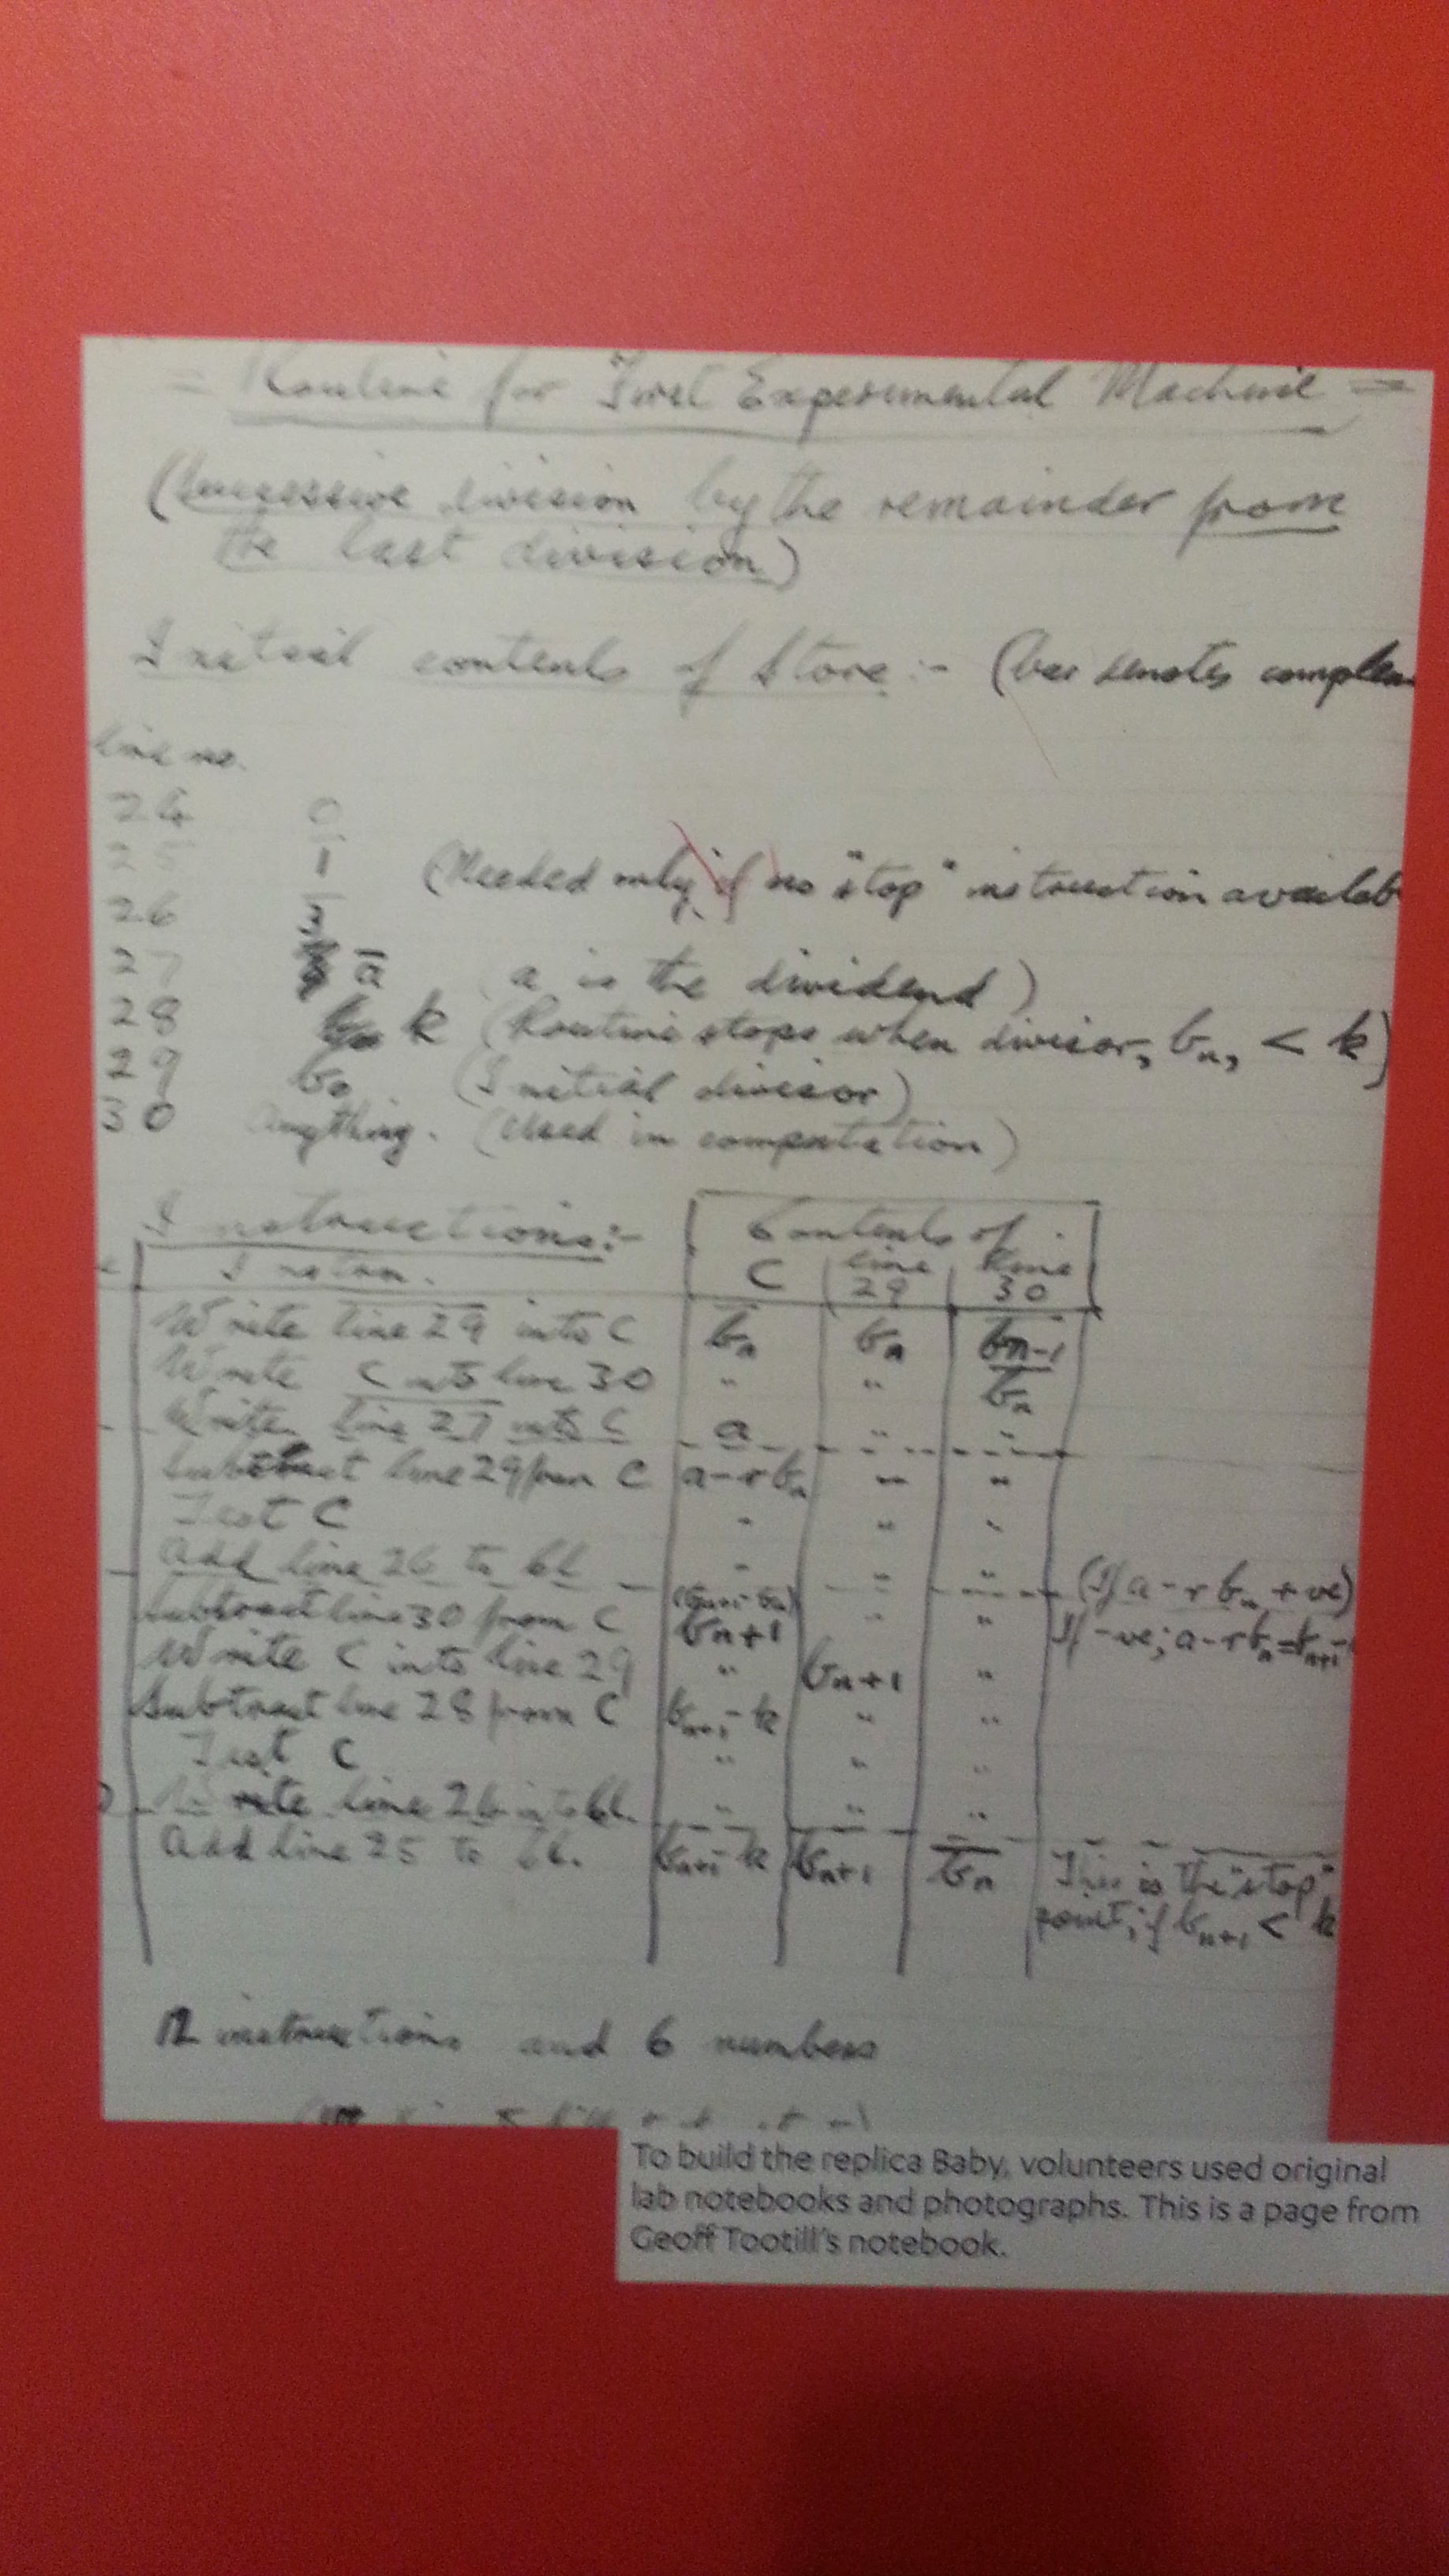 = Routine for First Experimental Machine =
(Successive division by the remainder from
the last division)
Initial contents of Store :- (bar denotes complem
line no.
24 0
25 1 (Needed only if no "stop" instruction availab
26 3̅
27 a̅ (a is the dividend)
28 k (Routine stops when divisor, bn, < k)
29 b0 (Initial divisor)
30 Anything. (Used in computation)
Instructions:- Contents of
Inston. C line 29 line 30
Write line 29 into C b̅n bn b̅n-1
Write C into line 30 " " b̅n
Write line 27 into C a " "
Subtract line 29 from C a-rbn " "
Test C " " "
Add line 26 to bl " " " (If a-rbn +ve)
Subtract line 30 from C (bn+1-bn) bn+1 " " If -ve; a-rbn = bn+1-
Write C into line 29 " bn+1 "
Subtract line 28 from C bn+1-k " "
Test C " " "
Write line 26 into bl. " " "
Add line 25 to bl. bn+1-k bn+1 b̅n This is the "stop"
point, if bn+1 < k
12 instructions and 6 numbers
To build the replica Baby, volunteers used original
lab notebooks and photographs. This is a page from
Geoff Tootill's notebook.